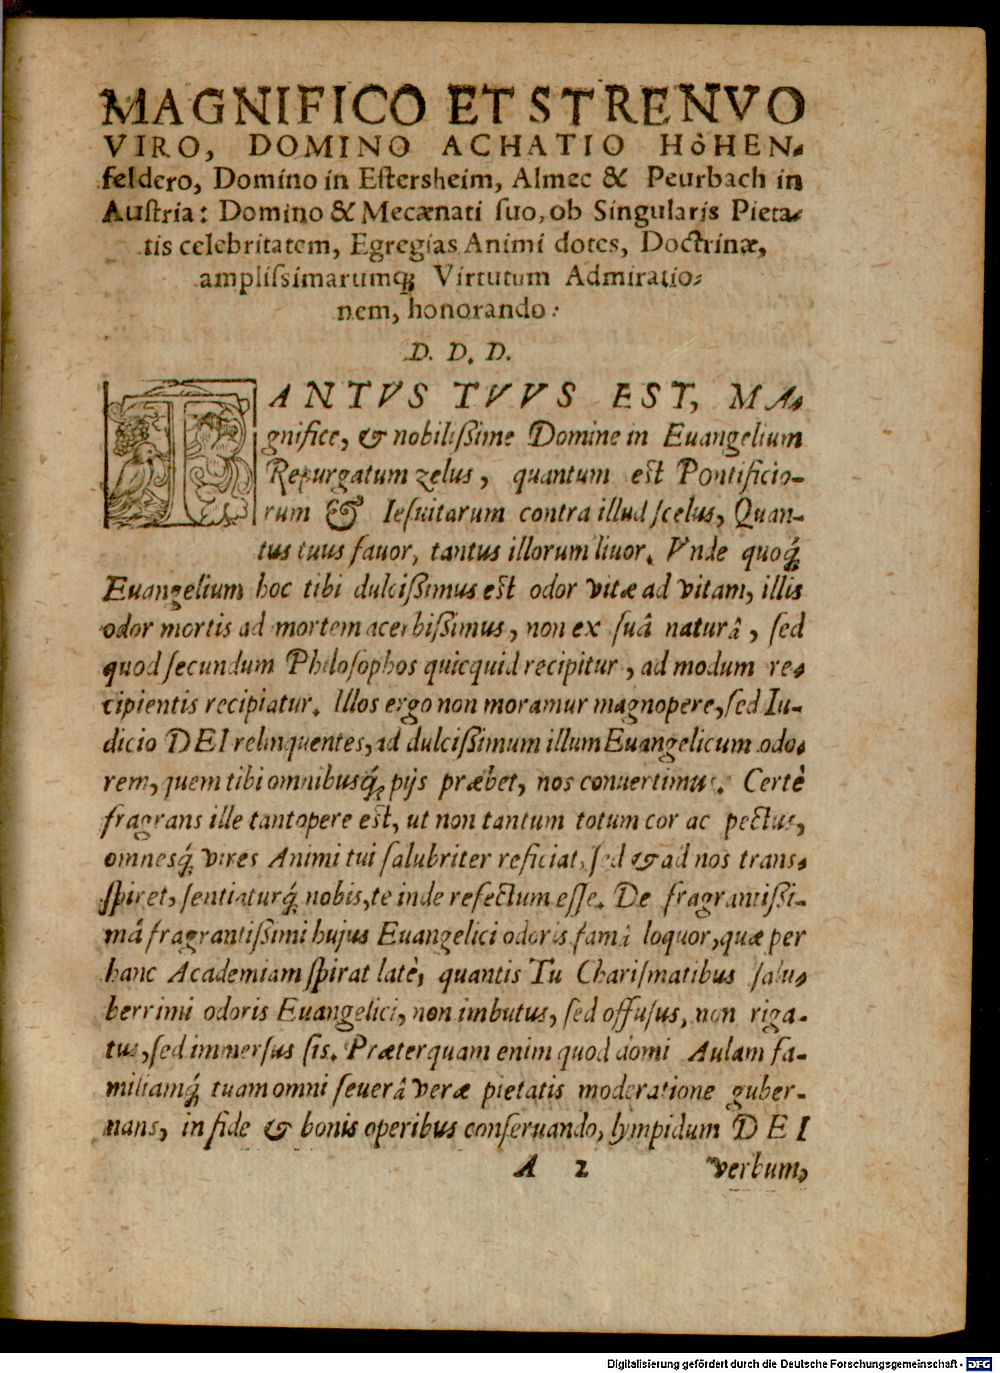 MAGNIFICO ET STRENVO
VIRO, DOMINO ACHATIO HòHEN-
feldero, Domino in Eſtersheim, Almec & Peurbach in
Auſtria: Domino & Mecænati ſuo, ob Singularis Pieta-
tis celebritatem, Egregias Animi dotes, Doctrinæ,
ampliſsimarumq́; Virtutum Admiratio-
nem, honorando:
D. D. D.
TANTVS TVVS EST, MA-
gnifice, & nobilißime Domine in Euangelium
Repurgatum zelus, quantum est Pontificio-
rum & Ieſuitarum contra illud ſcelus, Quan-
tus tuus fauor, tantus illorum liuor. Vnde quoq́;
Euangelium hoc tibi dulcißimus est odor vitæ ad vitam, illis
odor mortis ad mortem acerbißimus, non ex ſuâ naturâ, ſed
quod ſecundum Philoſophos quicquid recipitur, ad modum re-
cipientis recipiatur. Illos ergo non moramur magnopere, ſed Iu-
dicio DEI relinquentes, ad dulcißimum illum Euangelicum odo-
rem, quem tibi omnibusq́; pijs præbet, nos conuertimus. Certè
fragrans ille tantopere est, ut non tantum totum cor ac pectus,
omnesq́; vires Animi tui ſalubriter reficiat, ſed & ad nos trans-
ſpiret, ſentiaturq́; nobis, te inde refectum eſſe. De fragrantißi-
mâ fragrantißimi hujus Euangelici odoris famâ loquor, quæ per
hanc Academiam ſpirat latè, quantis Tu Chariſmatibus ſalu-
berrimi odoris Euangelici, non imbutus, ſed offuſus, non riga-
tus, ſed immerſus ſis. Præterquam enim quod domi Aulam fa-
miliamq́; tuam omni ſeuerâ veræ pietatis moderatione guber-
nans, in fide & bonis operibus conſeruando, lympidum DEI
A 2 verbum,
Digitalisierung gefördert durch die Deutsche Forschungsgemeinschaft - DFG